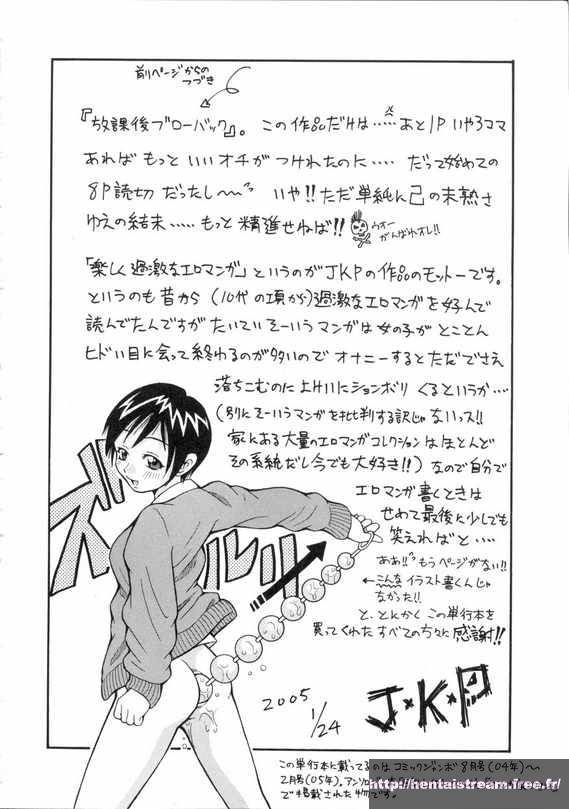 前ページからの
つづき
『放課後ブローバック』。この作品だけは……あと1Pいやろコマ
あればもっといいオチがつけれたのに…… だって始めての
8P読切だったし〜 いや!!ただ単純に己の未熟さ
ゆえの結末……もっと精進せねば!!
ウオー
がんばれオレ!!
「楽しく過激なエロマンガ」というのがJKPの作品のモットーです。
というのも昔から(10代の頃から)過激なエロマンガを好んで
読んでたんですがたいていそーいうマンガは女の子がとことん
ヒドい目に会って終わるのが多いのでオナニーするとただでさえ
落ちこむのに よけいにションボリくるというか…
(別にそーいうマンガを批判する訳じゃないっス!!
家にある大量のエロマンガコレクションはほとんど
その系統だし今でも大好き!!)なので自分で
エロマンガ書くときは
せめて最後に少しでも
笑えればと…。
ああ!!もうページがない!!
←こんなイラスト書くんじゃ
なかった!!
と、とにかくこの単行本を
買ってくれたすべての方々に感謝!!
ズルルリ
2005
1/24
J・K・P
この単行本に載ってるのはコミックジャンボ8月号(04年)〜
2月号(05年)、アンソロ
で掲載された物です。
http://hentaistream.free.fr/